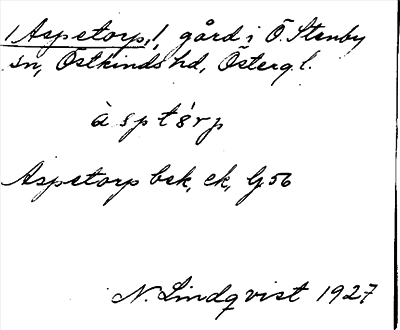 /Aspetorp,/ gård i Ö. Stenby
sn, Östkinds hd, Östergl.
àsptó̤rp
Aspetorp bsk, ek, G 56
N. Lindqvist 1927